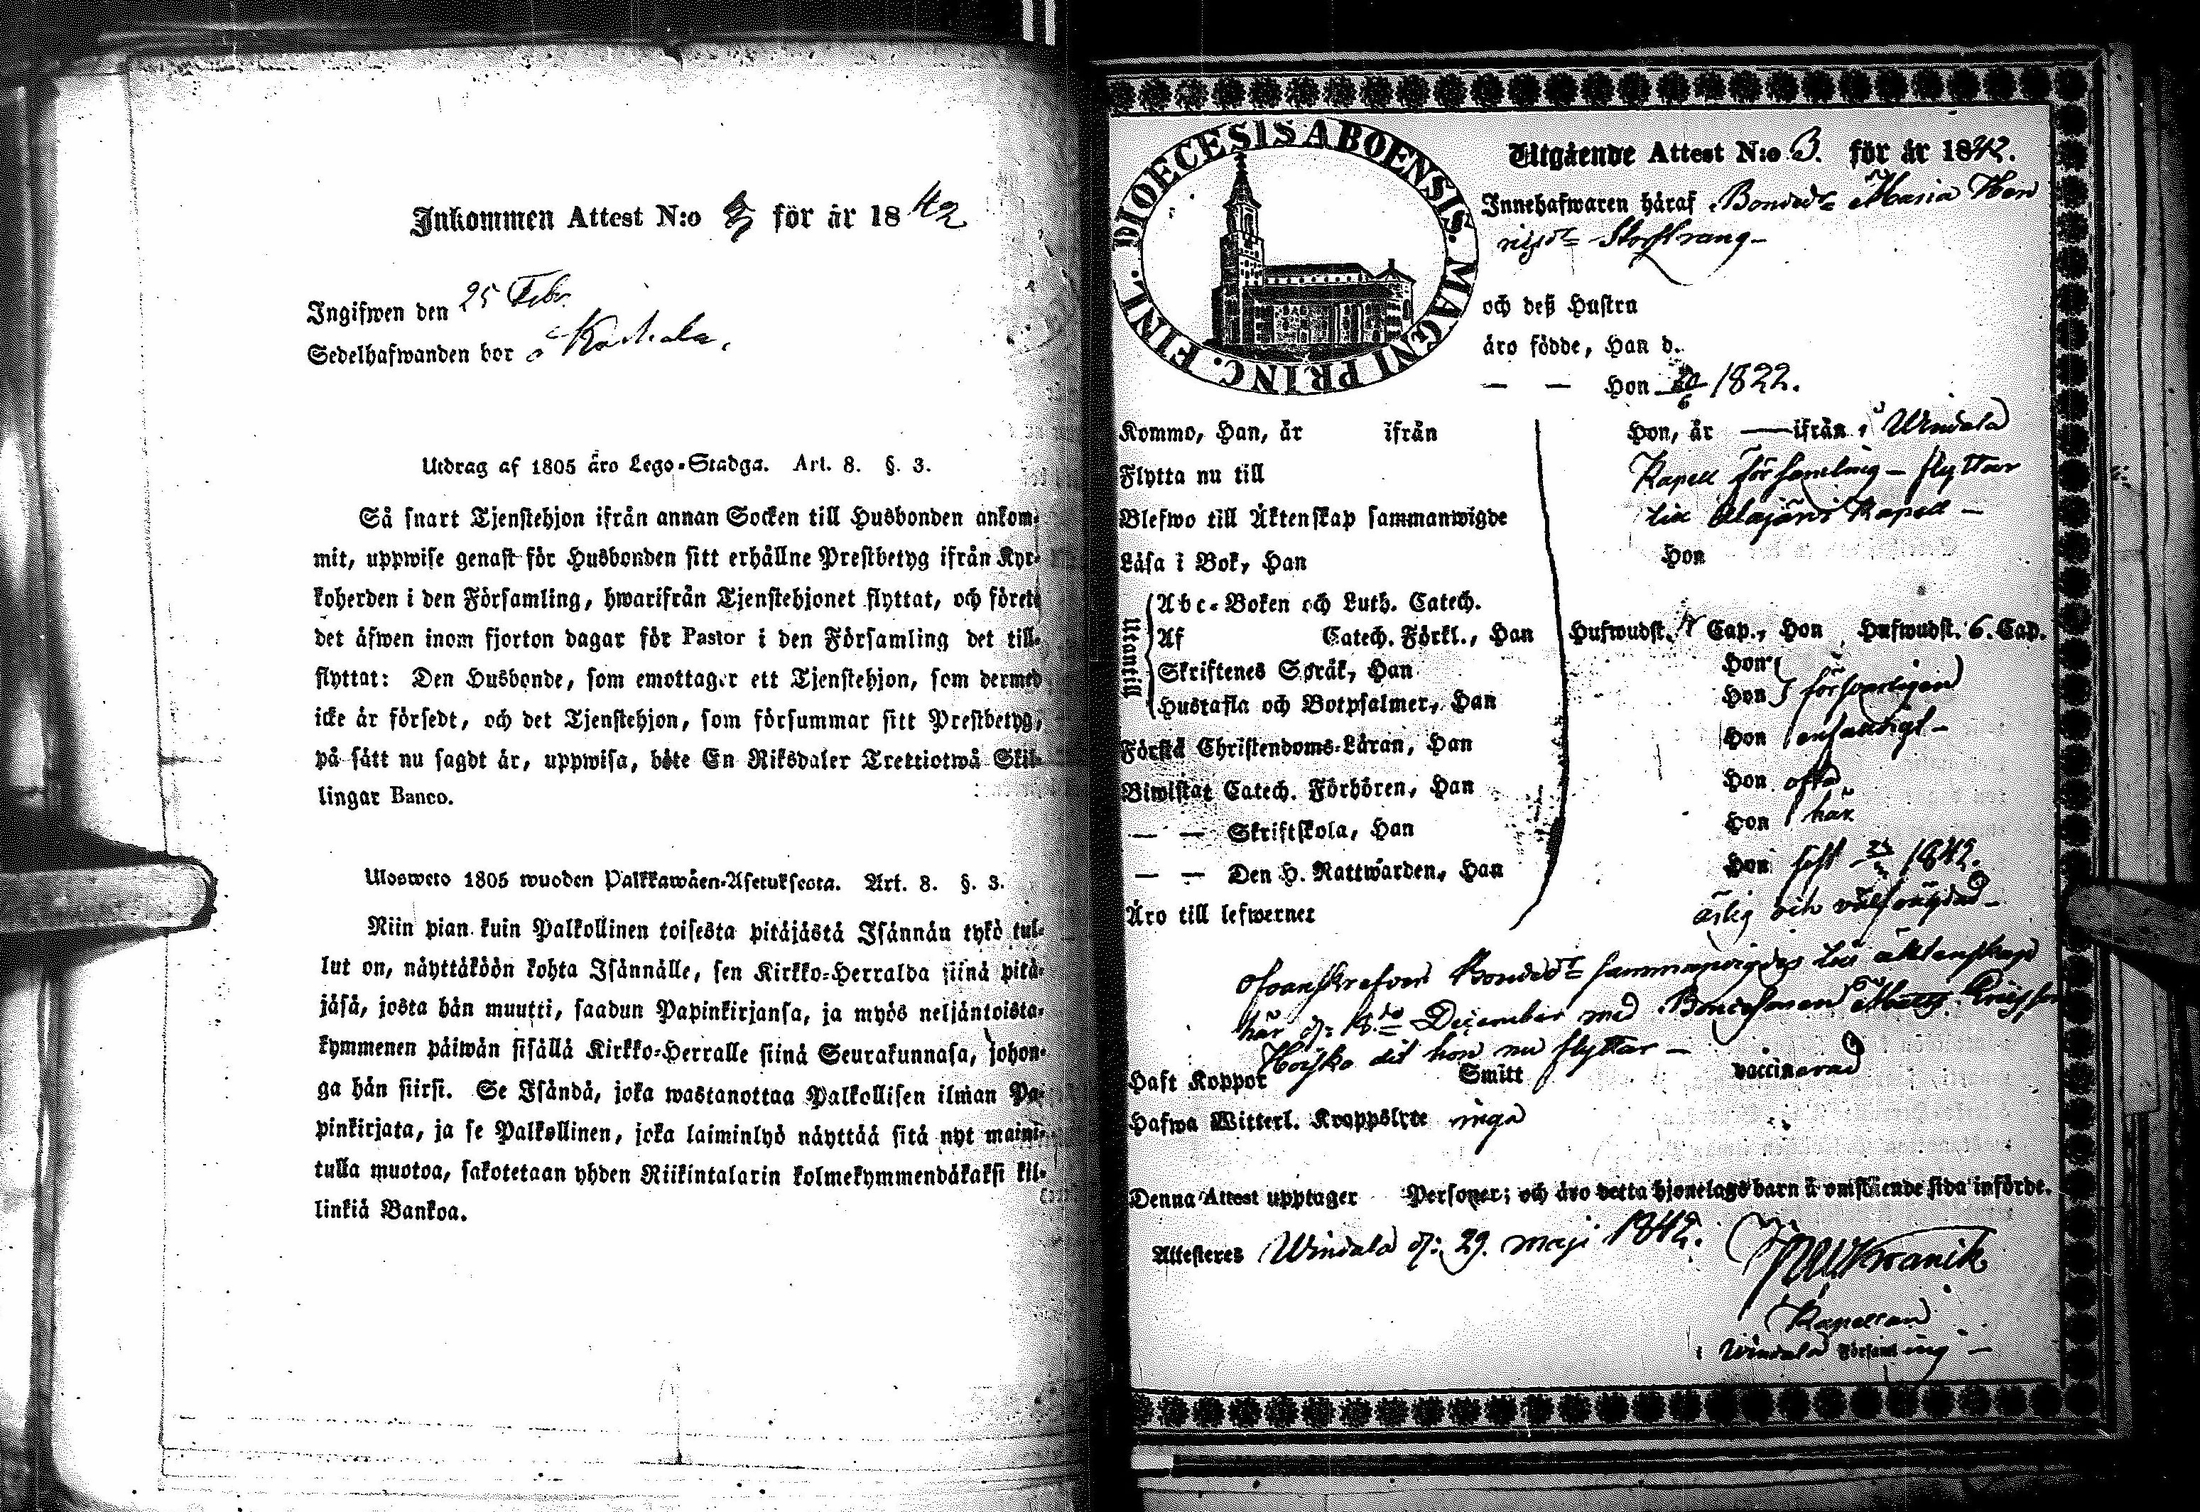 Inkommen Attest N:o för år 1842
Ingifwen den 25 Febr
Sedelhafwanden bor å
Utdrag af 1805 åro Lego-Stadga. Art. 8. §. 3.
Så snart Tjenstehjon ifrån annan Socken till Husbonden ankom-
mit, uppwise genast för Husbonden sitt erhållne Prestbetyg ifrån Kyr-
koherden i den Församling, hwarifrån Tjenstehjonet flyttat, och förete
det äfwen inom fjorton dagar för Pastor i den Församling det till-
flyttat: Den Husbonde, som emottager ett Tjenstehjon, som dermed
icke är försedt, och det Tjenstehjon, som försummar sitt Prestbetyg,
på sätt nu sagdt är, uppwisa, böte En Riksdaler Trettiotwå Skil-
lingar Banco.
Ulosweto 1805 wuoden Palkkawäen-Asetuksesta. Art. 8. §. 3.
Niin pian kuin Palkollinen toisesta pitäjästä Isännän tykö tul-
lut on, näyttäköön kohta Isännälle, sen Kirkko-Herralda siinä pitä-
jäsä, josta hän muutti, saadun Papinkirjansa, ja myös neljäntoista-
kymmenen päiwän sisällä Kirkko-Herralle siinä Seurakunnasa, johon-
ga hän siirsi. Se Isändä, joka wastanottaa Palkollisen ilman Pa-
pinkirjata, ja se Palkollinen, joka laiminlyö näyttää sitä nyt maini-
tulla muotoa, sakotetaan yhden Riikintalarin kolmekymmendäkaksi kil-
linkiä Bankoa.
DIOECESIS ABOENSIS. MAGNI PRINC. FINL.
Utgående Attest N:o 3. för år 1842.
Innehafwaren häraf Bondedr Maria Hen
riksdr Storstrang
och deß Hustru
äro födde, Han d.
— — Hon 20/6 1822.
Kommo, Han, år ifrån Hon, år — ifrån Windala
Flytta nu till Kapell församling — flyttar
Blefwo till Äktenskap sammanwigde till Alajärvi Kapell —
Läsa i Bok, Han Hon
Utantill
Abc-Boken och Luth. Catech.
Af Catech. Förkl., Han Hufwudst. Cap., Hon Hufwudst. 6. Cap.
Skriftenes Språk, Han Hon
Hustafla och Botpsalmer, Han Hon försvarligen
Förstå Christendoms-Läran, Han Hon enfaldigt —
Biwistat Catech. Förhören, Han Hon ofta
— — Skriftskola, Han Hon här
— — Den H. Nattwarden, Han Hon sist 1842.
Äro till lefwernet ärlig och välfrägdad —
Ofvanskrefven Bondedr sammanvigdes till äktenskap
här d: 18de December med Bondesonen Matts Ericsson
Hoisko dit hon nu flyttar —
Haft Koppor Smitt vaccinerad
Hafwa Witterl. Kroppslyte inga
Denna Attest upptager Personer; och äro detta hjonelags barn å omstående sida införde.
Attesteras Windala d: 29. maji 1842.
Kapellan
i Windala Församling —